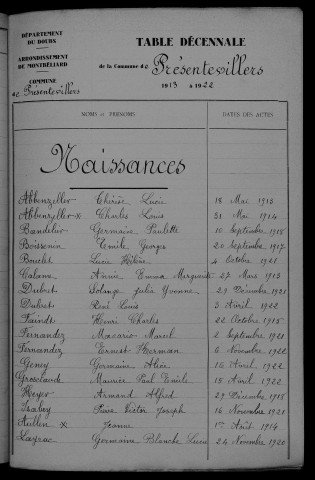 DÉPARTEMENT
DU DOUBS
ARRONDISSEMENT
DE MONTBÉLIARD
COMMUNE
de Présentevillers
TABLE DÉCENNALE
de la Commune de Présentevillers
1913 à 1922
NOMS ET PRÉNOMS DATES DES ACTES
Naissances
Abbenzeller Thérèse Lucie 18 Mai 1913
Abbenzeller x Charles Louis 31 Mai 1914
Germaine Paulette 10 Septembre
Boissenin Emile Georges 20 Septembre 1917
Bouclet Lucie Hélène 4 Octobre 1921
Calame Annie Emma Marguerite 27 Mars 1913
Dubret Solange Julia Yvonne 29 Décembre 1921
Dubret René Louis 3 Avril 1922
Henri Charles 22 Octobre 1915
Fernandez Macario Marcel 2 Septembre 1921
Fernandez Ernest Herman 6 Novembre 1922
Geney Germaine Alice 16 Avril 1922
Grosclaude Maurice Paul Emile 15 Avril 1922
Armand Alfred 29 Décembre
Isabey Pierre Victor Joseph 14 Novembre 1921
x Jeanne 1er Août 1914
Germaine Blanche 24 Novembre 1920